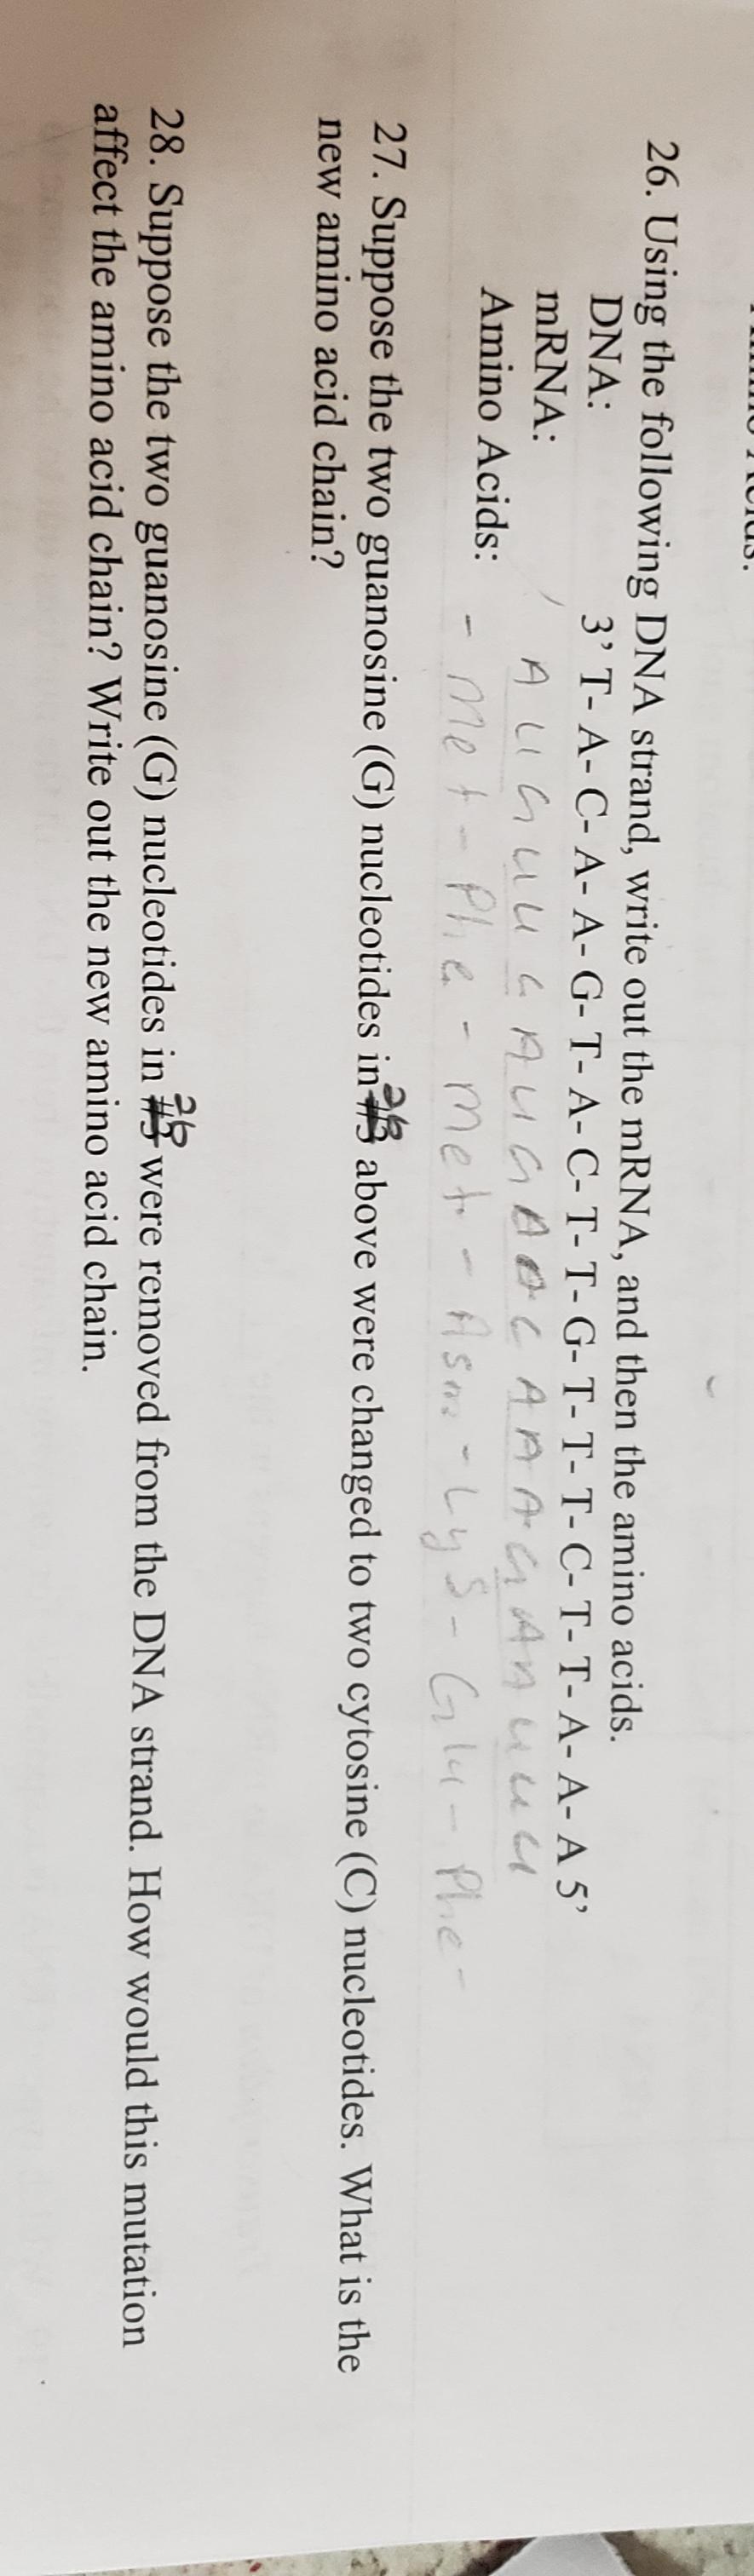 26. Using the following DNA strand, write out the mRNA, and then the amino acids.
DNA: 3' T- A- C- A- A- G- T- A- C- T- T- G- T- T- T- C- T- T- A- A- A 5'
mRNA: A U G U U C A U G A A C A A A G A A U U U
Amino Acids: - Met - Phe - Met - Asn - Lys - Glu - Phe -
27. Suppose the two guanosine (G) nucleotides in 26 above were changed to two cytosine (C) nucleotides. What is the
new amino acid chain?
28. Suppose the two guanosine (G) nucleotides in 26 were removed from the DNA strand. How would this mutation
affect the amino acid chain? Write out the new amino acid chain.